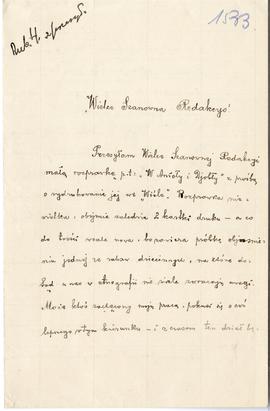 1533
Wielce Szanowna Redakcyo!
Przesyłam Wielce Szanownej Redakcyi
małą rozprawkę p.t: „W Anioły i Djabły" z prośbą
o wydrukowanie jej we „Wiśle". Rozprawka nie
wielka, obejmie zaledwie 2 kartki druku – a co
do treści wcale nowa, bo zawiera próbkę objaśnie
nia jednej ze zabaw dziecinnych, na które do-
tąd u nas w etnografii nie wiele zwracają uwagi.
Może ktoś zachęcony moją pracą, pokusi się o coś
lepszego w tym kierunku – i z czasem ten dział bę-